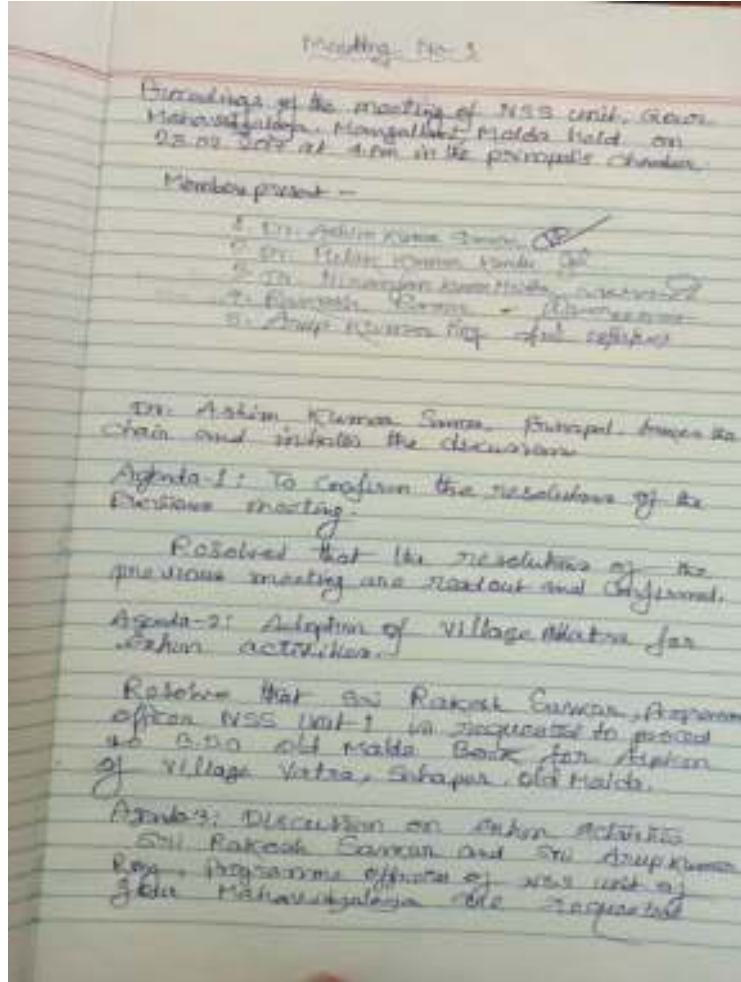 Meeting No-1
Proceedings of the meeting of NSS unit, Gour
Mahavidyalaya, Mangalbari, Malda held on
at 4 pm in the principal's chamber
Members present -
1. Dr. Ashim Kumar Sarkar
2. Dr.
3. Dr. Niranjan Kumar
4. Rakesh Sarkar -
5. Arup Kumar Roy
Dr. Ashim Kumar Sarkar, Principal, the
chair and initiates the discussions
Agenda-1: To confirm the resolutions of the
Previous meeting.
Resolved that the resolutions of the
previous meeting are readout and confirmed.
Agenda-2: Adoption of village for
activities.
Resolve that Sri Rakesh Sarkar, Programme
officer NSS Unit-1 is requested to proceed
to B.D.O old Malda Block for
of village Vatra, Sahapur, Old Malda.
Agenda-3: Discussion on activities
Sri Rakesh Sarkar and Sri Arup Kumar
Roy, Programme officers of NSS unit of
Gour Mahavidyalaya are requested